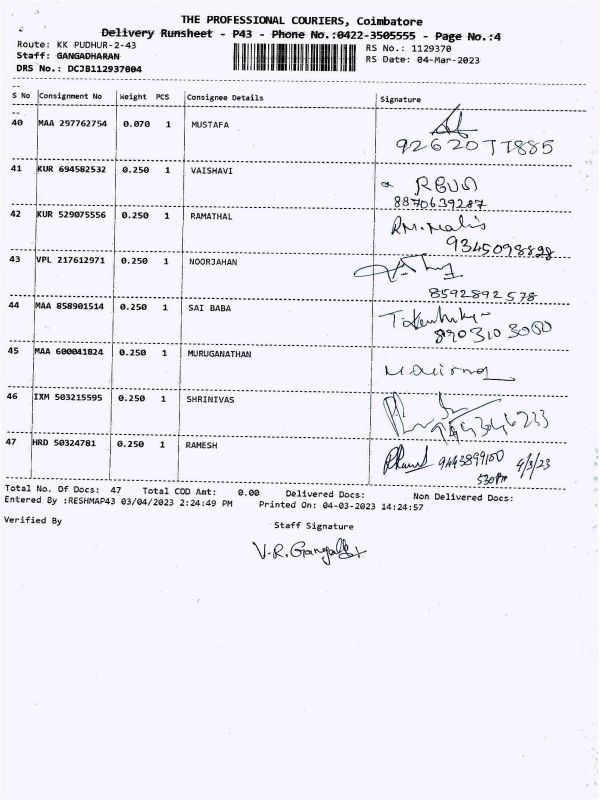 THE PROFESSIONAL COURIERS, Coimbatore
Delivery Runsheet - P43 - Phone No.:0422-3505555 - Page No.:4
Route: KK PUDHUR-2-43
RS No.: 1129370
Staff: GANGADHARAN
RS Date: 04-Mar-2023
DRS No.: DCJB112937004
S No Consignment No Weight PCS Consignee Details Signature
40 MAA 297762754 0.070 1 MUSTAFA
9262077885
41 KUR 694582532 0.250 1 VAISHAVI
8870639287
42 KUR 529075556 0.250 1 RAMATHAL
9345098898
43 VPL 217612971 0.250 1 NOORJAHAN
8592892578
44 MAA 858901514 0.250 1 SAI BABA
8903103080
45 MAA 600041824 0.250 1 MURUGANATHAN
46 IXM 503215595 0.250 1 SHRINIVAS
47 HRD 50324781 0.250 1 RAMESH
9443899100 4/3/23
530Pm
Total No. Of Docs: 47 Total COD Amt: 0.00 Delivered Docs: Non Delivered Docs:
Entered By :RESHMAP43 03/04/2023 2:24:49 PM Printed On: 04-03-2023 14:24:57
Verified By
Staff Signature